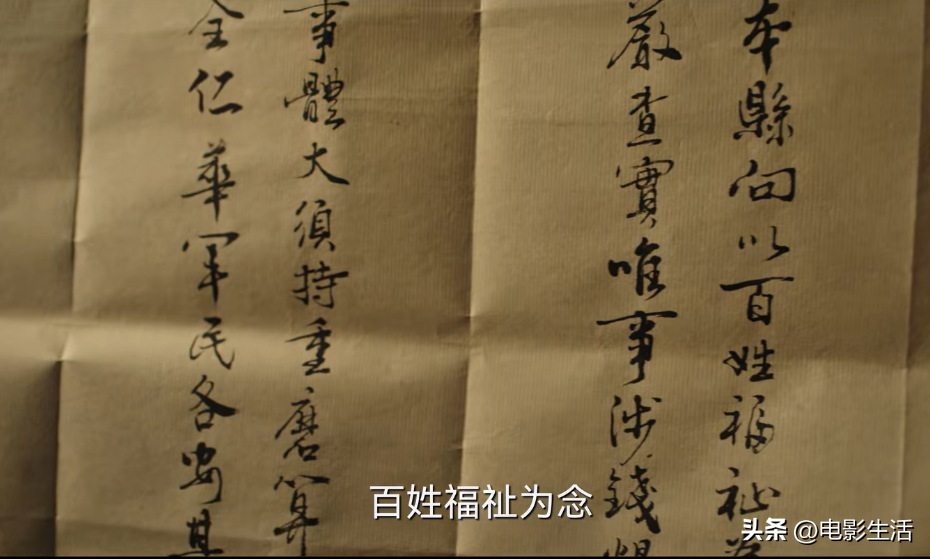 本縣向以百姓福祉
嚴查實唯事涉錢
事體大須持重磨算
全仁華軍民各安其
百姓福祉为念
头条 @电影生活